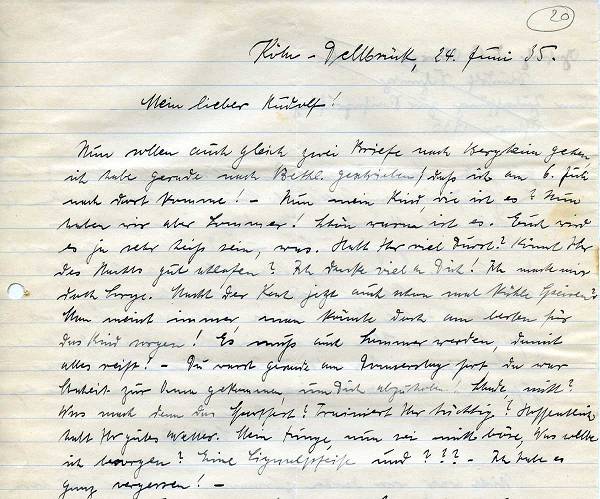 20
Köln-Dellbrück, 24. Juni 35.
Mein lieber Rudolf!
Nun sollen auch gleich zwei Briefe nach Bergheim gehen,
ich habe gerade nach Bethl. geschrieben, daß ich am 6. Juli
nach dort komme! - Nun mein Kind, wie ist es? Nun
haben wir aber Sommer! Schön warm ist es. Euch wird
es ja sehr heiß sein, was. Habt Ihr viel Durst? Könnt Ihr
des Nachts gut schlafen? Ich denke viel an Dich! Ich mach mir
doch Sorge. Macht der Kent jetzt auch schon mal kühle Speisen?
Man meint immer man könnte doch am besten für
das Kind sorgen! Es muß auch Sommer werden, damit
alles reift! - Du warst gerade am Donnerstag fort, da war
zur Anna gekommen, um Dich abzuholen! Schade, nicht?
Was macht denn das Sportfest? Trainiert Ihr tüchtig? Hoffentlich
habt Ihr gutes Wetter. Mein Junge, nun sei nicht böse, Was sollte
ich besorgen? Eine Signalpfeife und ??? - Ich habe es
ganz vergessen! -